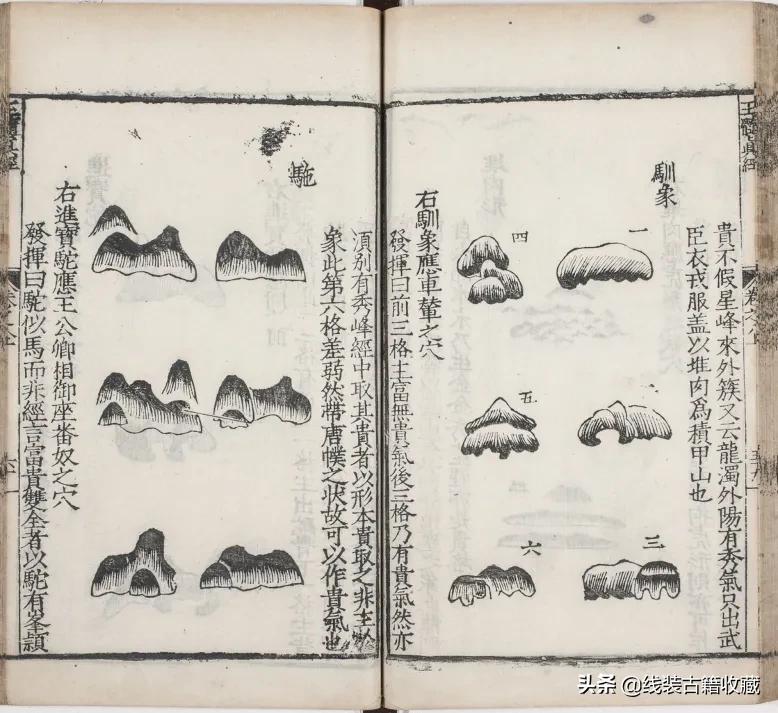 貴不假星峰來外簇又云龍濁外陽有秀氣只出武
臣衣戎服盖以堆肉爲積甲山也
馴象
一
二
三
四
五
六
右馴象應車輦之穴
發揮曰前三格主富無貴氣後三格乃有貴氣然亦
須別有秀峰經中取其貴者以形本貴取之非主於
象此第六格差弱然帶唐幞之状故可以作貴氣也
駞
右進寶駞應王公卿相御座番奴之穴
發揮曰駞似馬而非經言富貴雙全者以駞有峯頷
头条 @线装古籍收藏